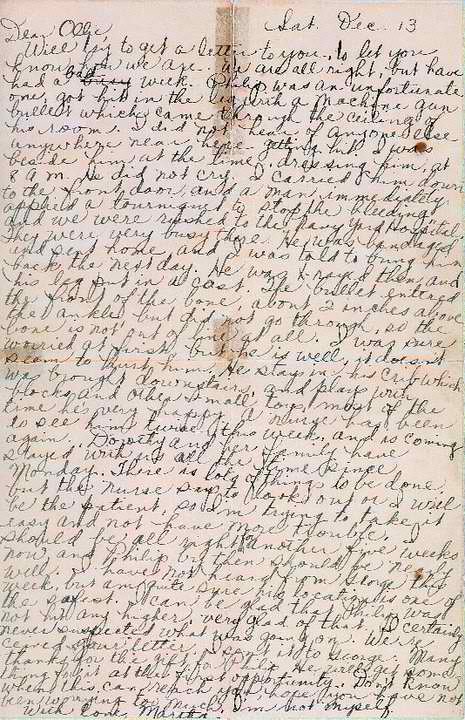 Sat. Dec. 13
Dear Ollie
Will try to get a letter to you, to let you
know how we are. We are all right, but have
had a bad busy week. Philip was an unfortunate
one, got hit in the leg with a machine gun
bullet which came through the ceiling of
his room. I did not hear of anyone else
anywhere near here getting hit. I was
beside him at the time, dressing him, at
8 A.M. He did not cry. I carried him down
to the front door, and a man immediately
applied a tourniquet to stop the bleeding
and we were rushed to the Navy Yard Hospital.
They were very busy there. He was bandaged
and sent home, and I was told to bring him
back the next day. He was X-rayed then, and
his leg put in a cast. The bullet entered
the front of the bone, about 2 inches above
the ankle but did not go through, so the
bone is not out of line at all. I was sure
worried at first, but he is well, it doesn't
seem to hurt him. He stays in his crib which
was brought downstairs, and plays with
blocks and other small toys, most of the
time he's very happy. A nurse has been
to see him twice this week, and is coming
again. Dorothy and her family have
stayed with us all the time since
Monday. There is lots of things to be done.
but the nurse says to look out or I will
be the patient, so I'm trying to take it
easy and not have more trouble. I
should be all right for another five weeks
now, and Philip by then should be nearly
well. I have not heard from George this
week, but am quite sure his location is one of
the safest. I can be glad that Philip was
not hit any higher, very glad of that. I certainly
never suspected what was going on. We re-
ceived your letter. I sent it to George. Many
thanks to you the gift for Philip. He will get some-
thing at the first opportunity. Don't know
when this can reach you, hope you have not
been worrying too much. I'm not myself
With love, Martha.